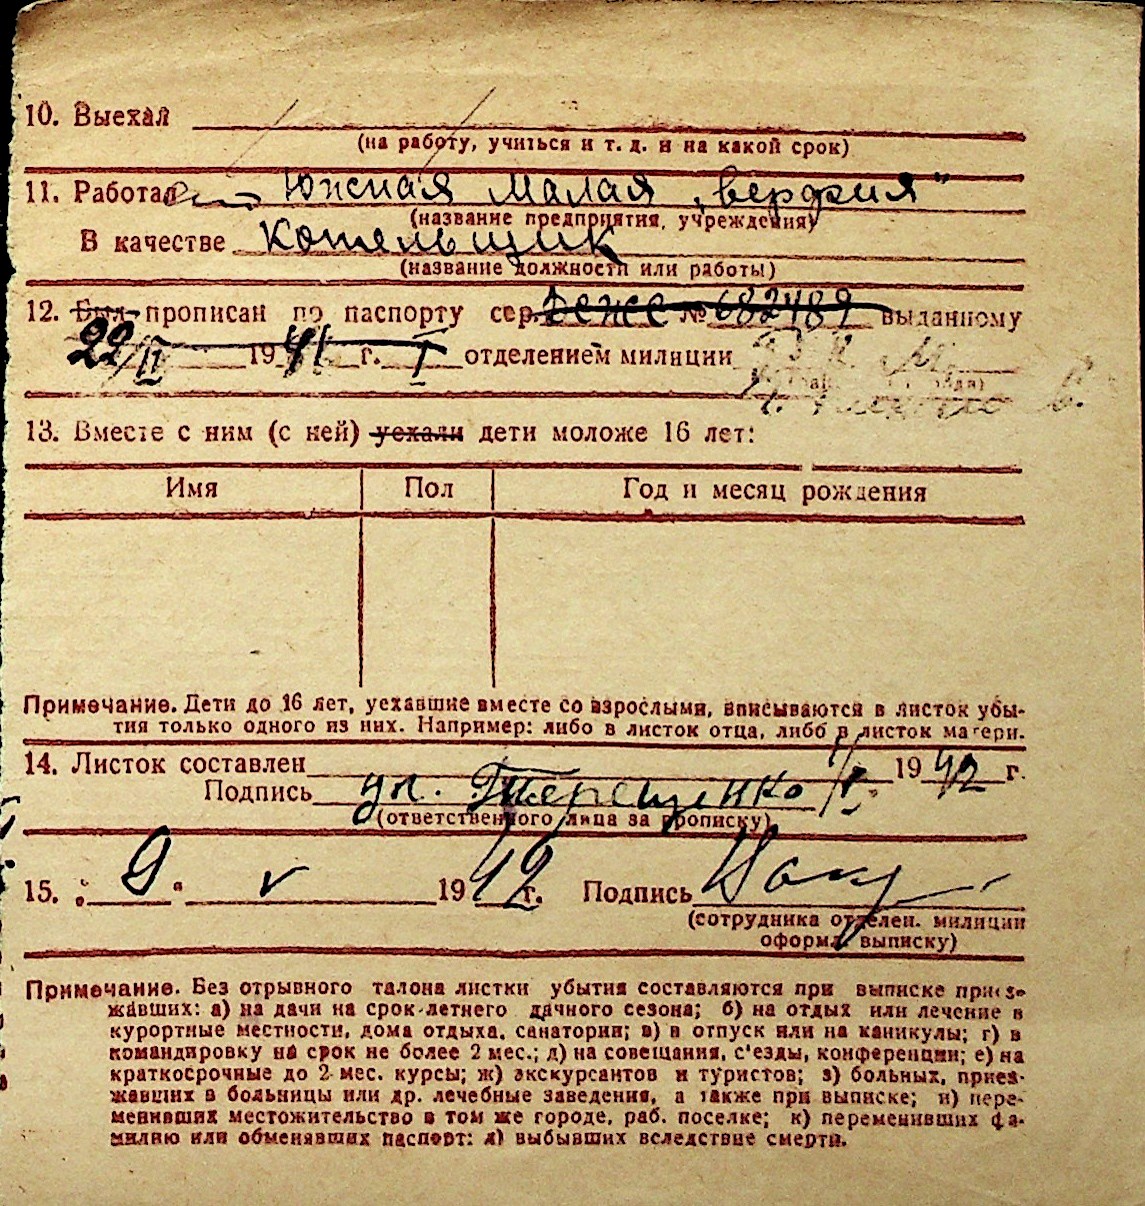 10. Выехал
(на работу, учиться и т. д. и на какой срок)
11. Работал Южная Малая „верфия"
(название предприятия, учреждения)
В качестве Котельщик
(название должности или работы)
12. Был прописан по паспорту сер. № 682489 выданному
22/IV 1941 г. I отделением милиции
13. Вместе с ним (с ней) уехали дети моложе 16 лет:
Имя Пол Год и месяц рождения
Примечание. Дети до 16 лет, уехавшие вместе со взрослыми, вписываются в листок убы-
тия только одного из них. Например: либо в листок отца, либо в листок матери.
14. Листок составлен 1942 г.
Подпись ул. Терещенко
(ответственного лица за прописку)
15. „9" V 1942 г. Подпись
(сотрудника отделен. милиции
оформл. выписку)
Примечание. Без отрывного талона листки убытия составляются при выписке приез-
жавших: а) на дачи на срок летнего дачного сезона; б) на отдых или лечение в
курортные местности, дома отдыха, санатории; в) в отпуск или на каникулы; г) в
командировку на срок не более 2 мес.; д) на совещания, с'езды, конференции; е) на
краткосрочные до 2 мес. курсы; ж) экскурсантов и туристов; з) больных, приез-
жавших в больницы или др. лечебные заведения, а также при выписке; и) пере-
менивших местожительство в том же городе, раб. поселке; к) переменивших фа-
милию или обменявших паспорт; л) выбывших вследствие смерти.